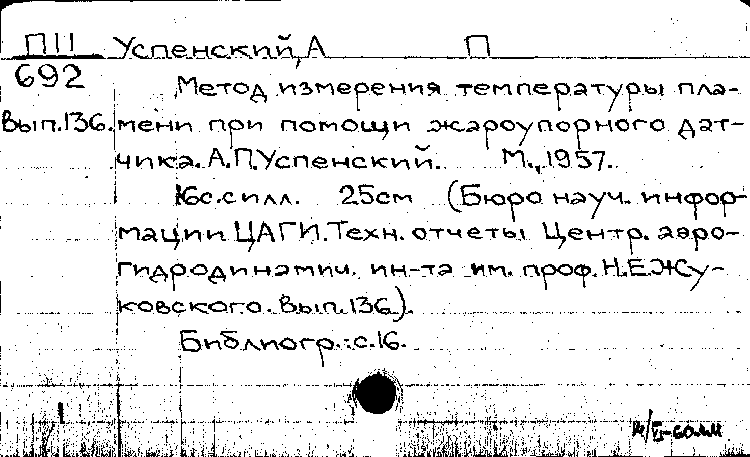 П11 Успенский, А П
692
Метод измерения температуры пла-
Вып.136. мени при помощи жароупорного дат-
чика. А.П.Успенский. М., 1957.
16с.с илл. 25см (Бюро науч. инфор-
мации ЦАГИ. Техн. отчеты Центр. аэро-
гидродинамич. ин-та им. проф. Н.Е.Жу-
ковского. Вып.136).
Библиогр.: с.16.